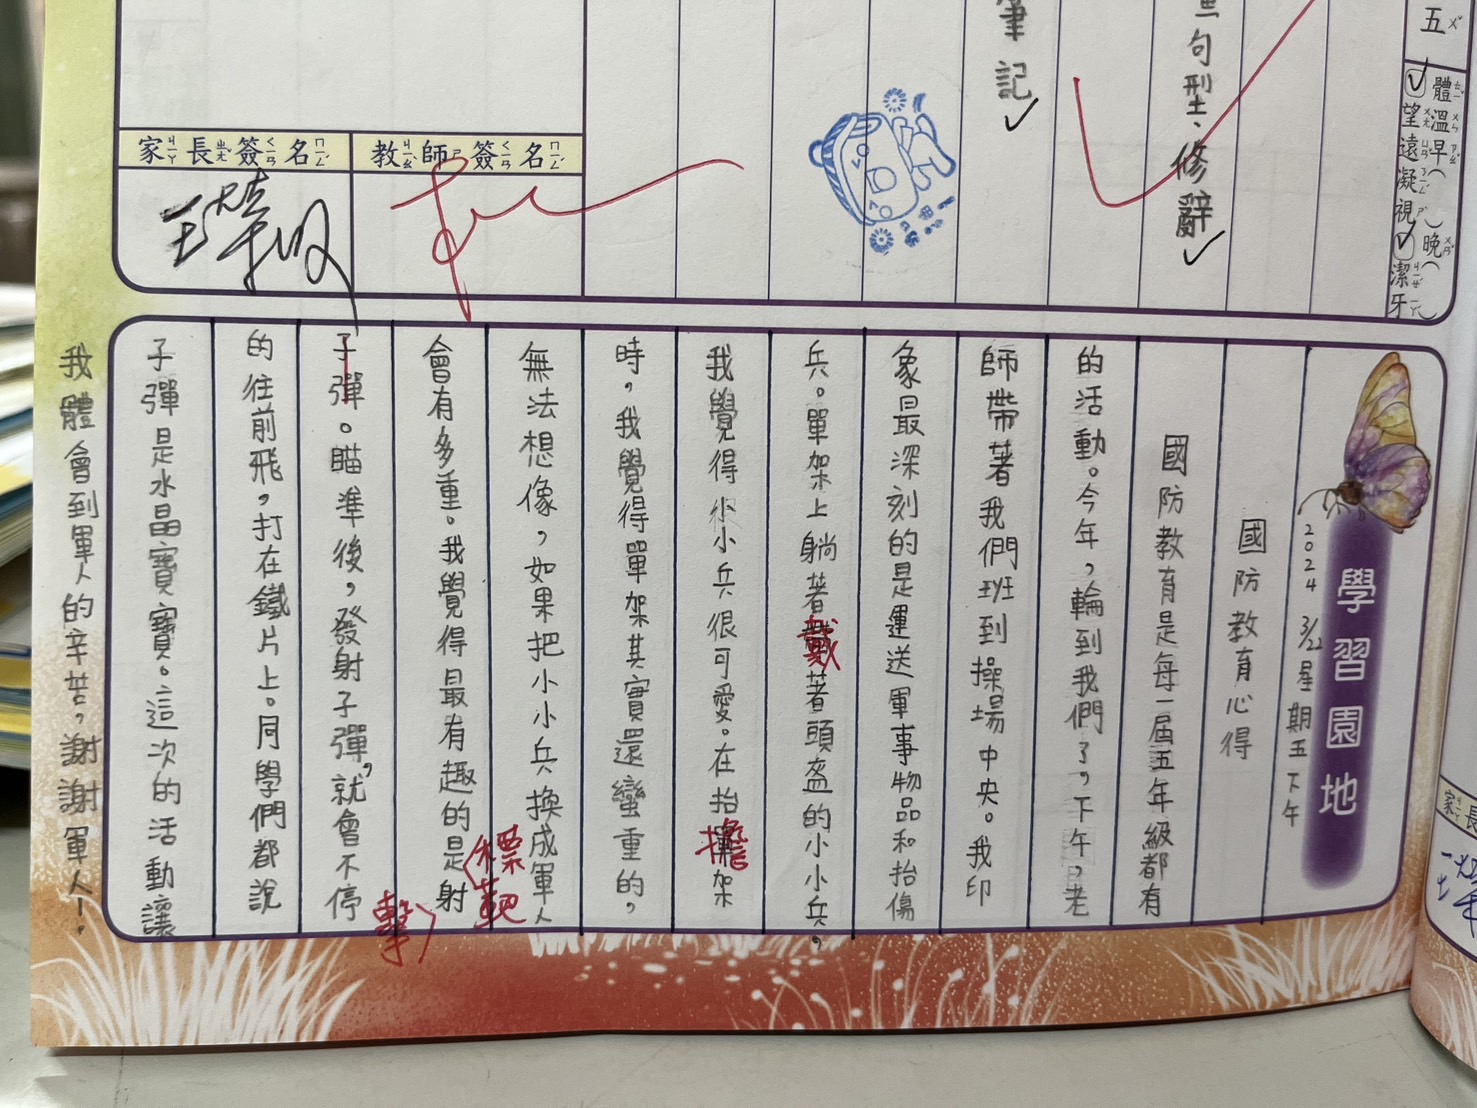 五
體溫早（　）晚（　）
望遠凝視
潔牙
無句型、修辭
筆記
教師簽名
家長簽名
學習園地
2024 3/22 星期五下午
國防教育心得
國防教育是每一屆五年級都有
的活動。今年，輪到我們了，下午，老
師帶著我們班到操場中央。我印
象最深刻的是運送軍事物品和抬傷
兵。單架上躺著戴著頭盔的小小兵，
我覺得小小兵很可愛。在抬擔架
時，我覺得單架其實還蠻重的，
無法想像，如果把小小兵換成軍人
會有多重。我覺得最有趣的是射
擊〉
標靶
子彈。瞄準後，發射子彈，就會不停
的往前飛，打在鐵片上。同學們都說
子彈是水晶寶寶。這次的活動讓
我體會到軍人的辛苦，謝謝軍人！。
家長